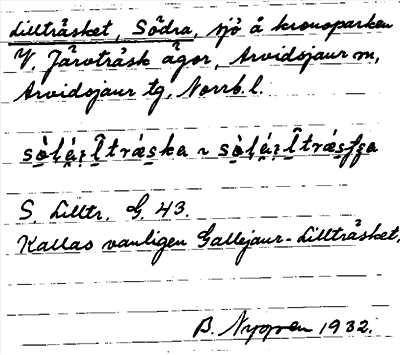 Lillträsket, Södra, sjö å kronoparken
V. Järvträsk ägor, Arvidsjaur sn,
Arvidsjaur tg, Norrb. l.
S. Lilltr. G. 43.
Kallas vanligen Gallejaur-Lillträsket.
B. Nygren 1932.